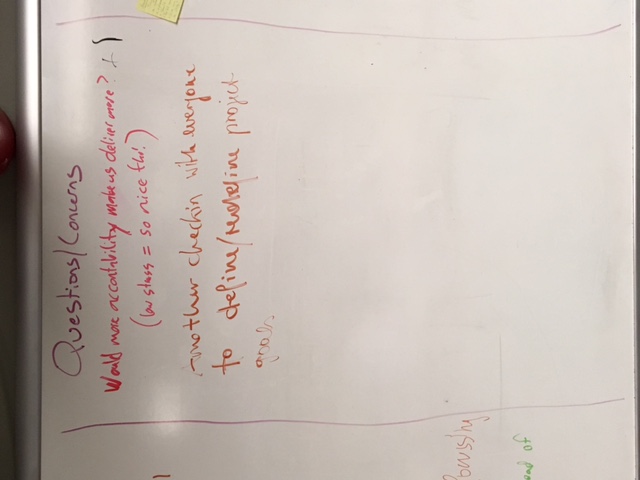 Questions/Concerns
Would more accontability make us deliver more? + 1
(low stress = so nice tho!)
Another checkin with everyone
to define/redefine project
goals
ead of